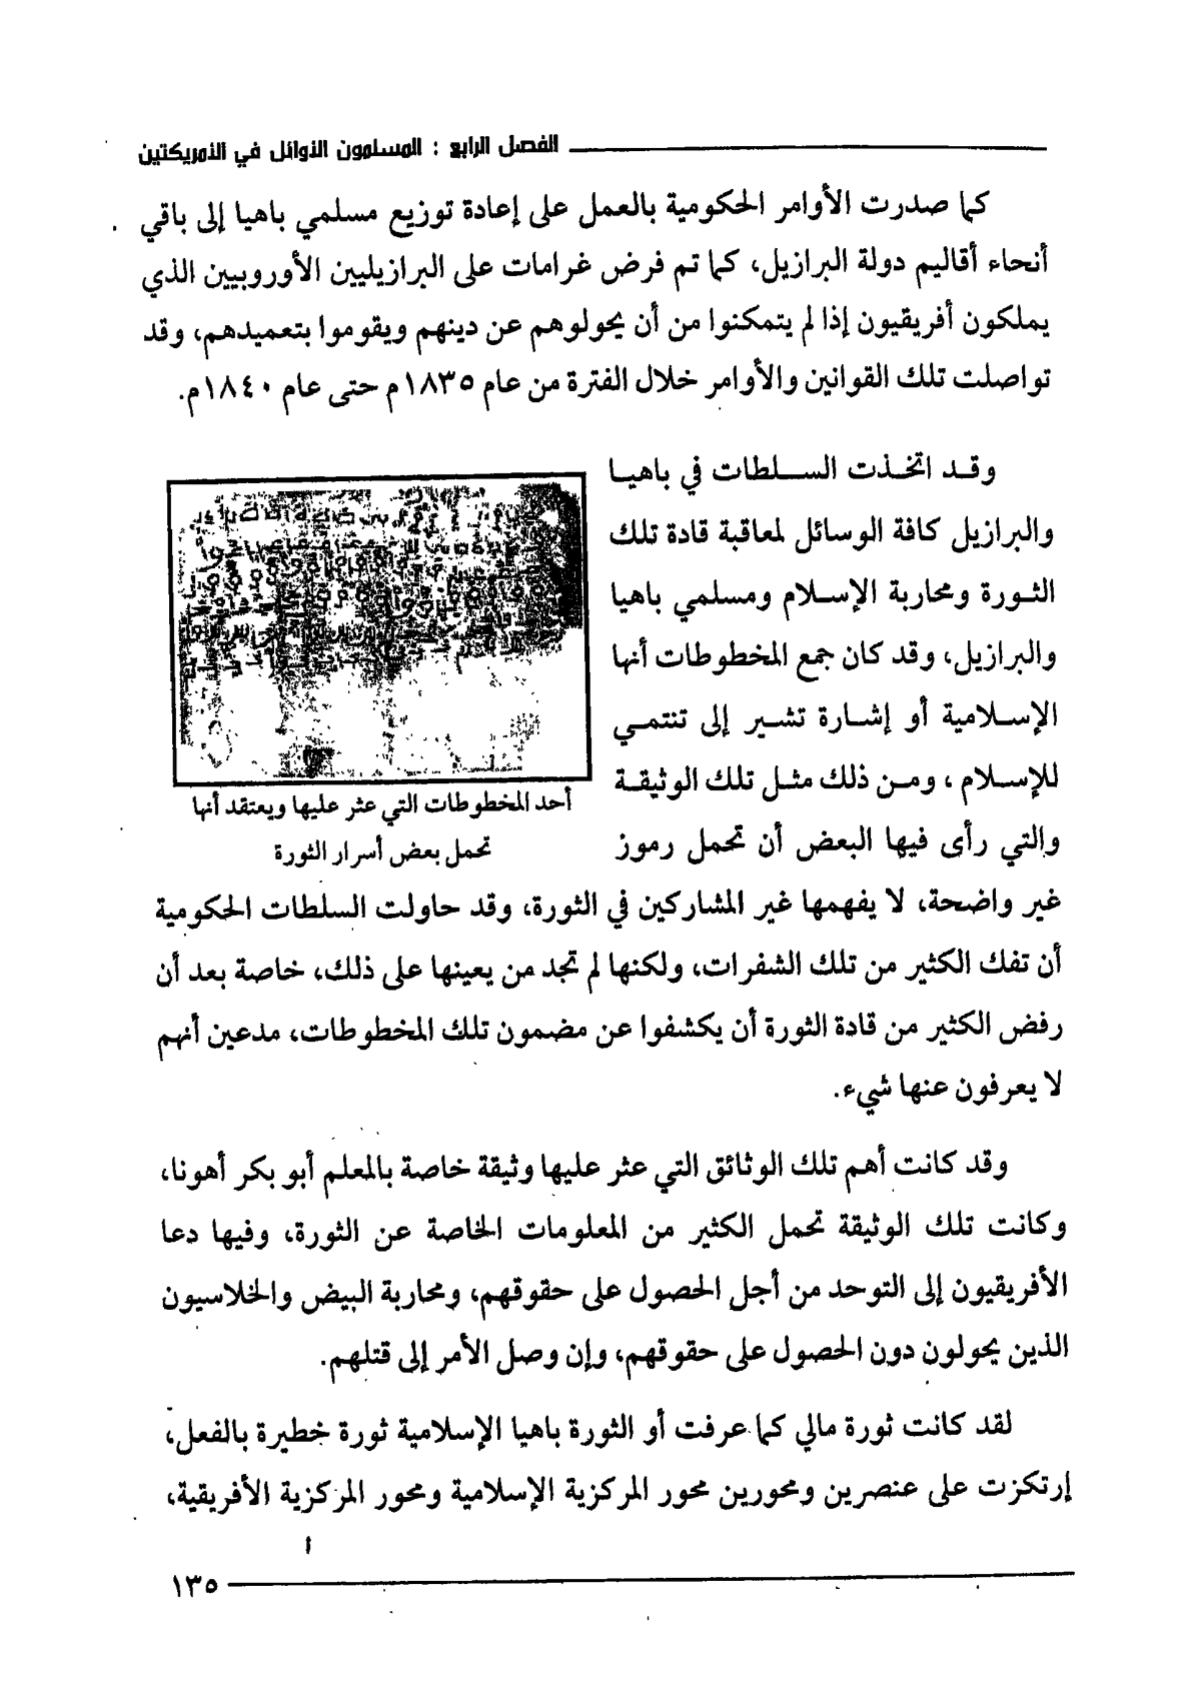 الفصل الرابع : المسلمون الأوائل في الأمريكتين
كما صدرت الأوامر الحكومية بالعمل على إعادة توزيع مسلمي باهيا إلى باقي
أنحاء أقاليم دولة البرازيل، كما تم فرض غرامات على البرازيليين الأوروبيين الذي
يملكون أفريقيون إذا لم يتمكنوا من أن يحولوهم عن دينهم ويقوموا بتعميدهم، وقد
تواصلت تلك القوانين والأوامر خلال الفترة من عام ١٨٣٥م حتى عام ١٨٤٠م.
وقد اتخذت السلطات في باهيا
والبرازيل كافة الوسائل لمعاقبة قادة تلك
الثورة ومحاربة الإسلام ومسلمي باهيا
والبرازيل، وقد كان جمع المخطوطات أنها
الإسلامية أو إشارة تشير إلى تنتمي
للإسلام ، ومن ذلك مثل تلك الوثيقة
والتي رأى فيها البعض أن تحمل رموز
أحد المخطوطات التي عثر عليها ويعتقد أنها
تحمل بعض أسرار الثورة
غير واضحة، لا يفهمها غير المشاركين في الثورة، وقد حاولت السلطات الحكومية
أن تفك الكثير من تلك الشفرات، ولكنها لم تجد من يعينها على ذلك، خاصة بعد أن
رفض الكثير من قادة الثورة أن يكشفوا عن مضمون تلك المخطوطات، مدعين أنهم
لا يعرفون عنها شيء.
وقد كانت أهم تلك الوثائق التي عثر عليها وثيقة خاصة بالمعلم أبو بكر أهونا،
وكانت تلك الوثيقة تحمل الكثير من المعلومات الخاصة عن الثورة، وفيها دعا
الأفريقيون إلى التوحد من أجل الحصول على حقوقهم، ومحاربة البيض والخلاسيون
الذين يحولون دون الحصول على حقوقهم، وإن وصل الأمر إلى قتلهم.
لقد كانت ثورة مالي كما عرفت أو الثورة باهيا الإسلامية ثورة خطيرة بالفعل،
إرتكزت على عنصرين ومحورين محور المركزية الإسلامية ومحور المركزية الأفريقية،
١٣٥